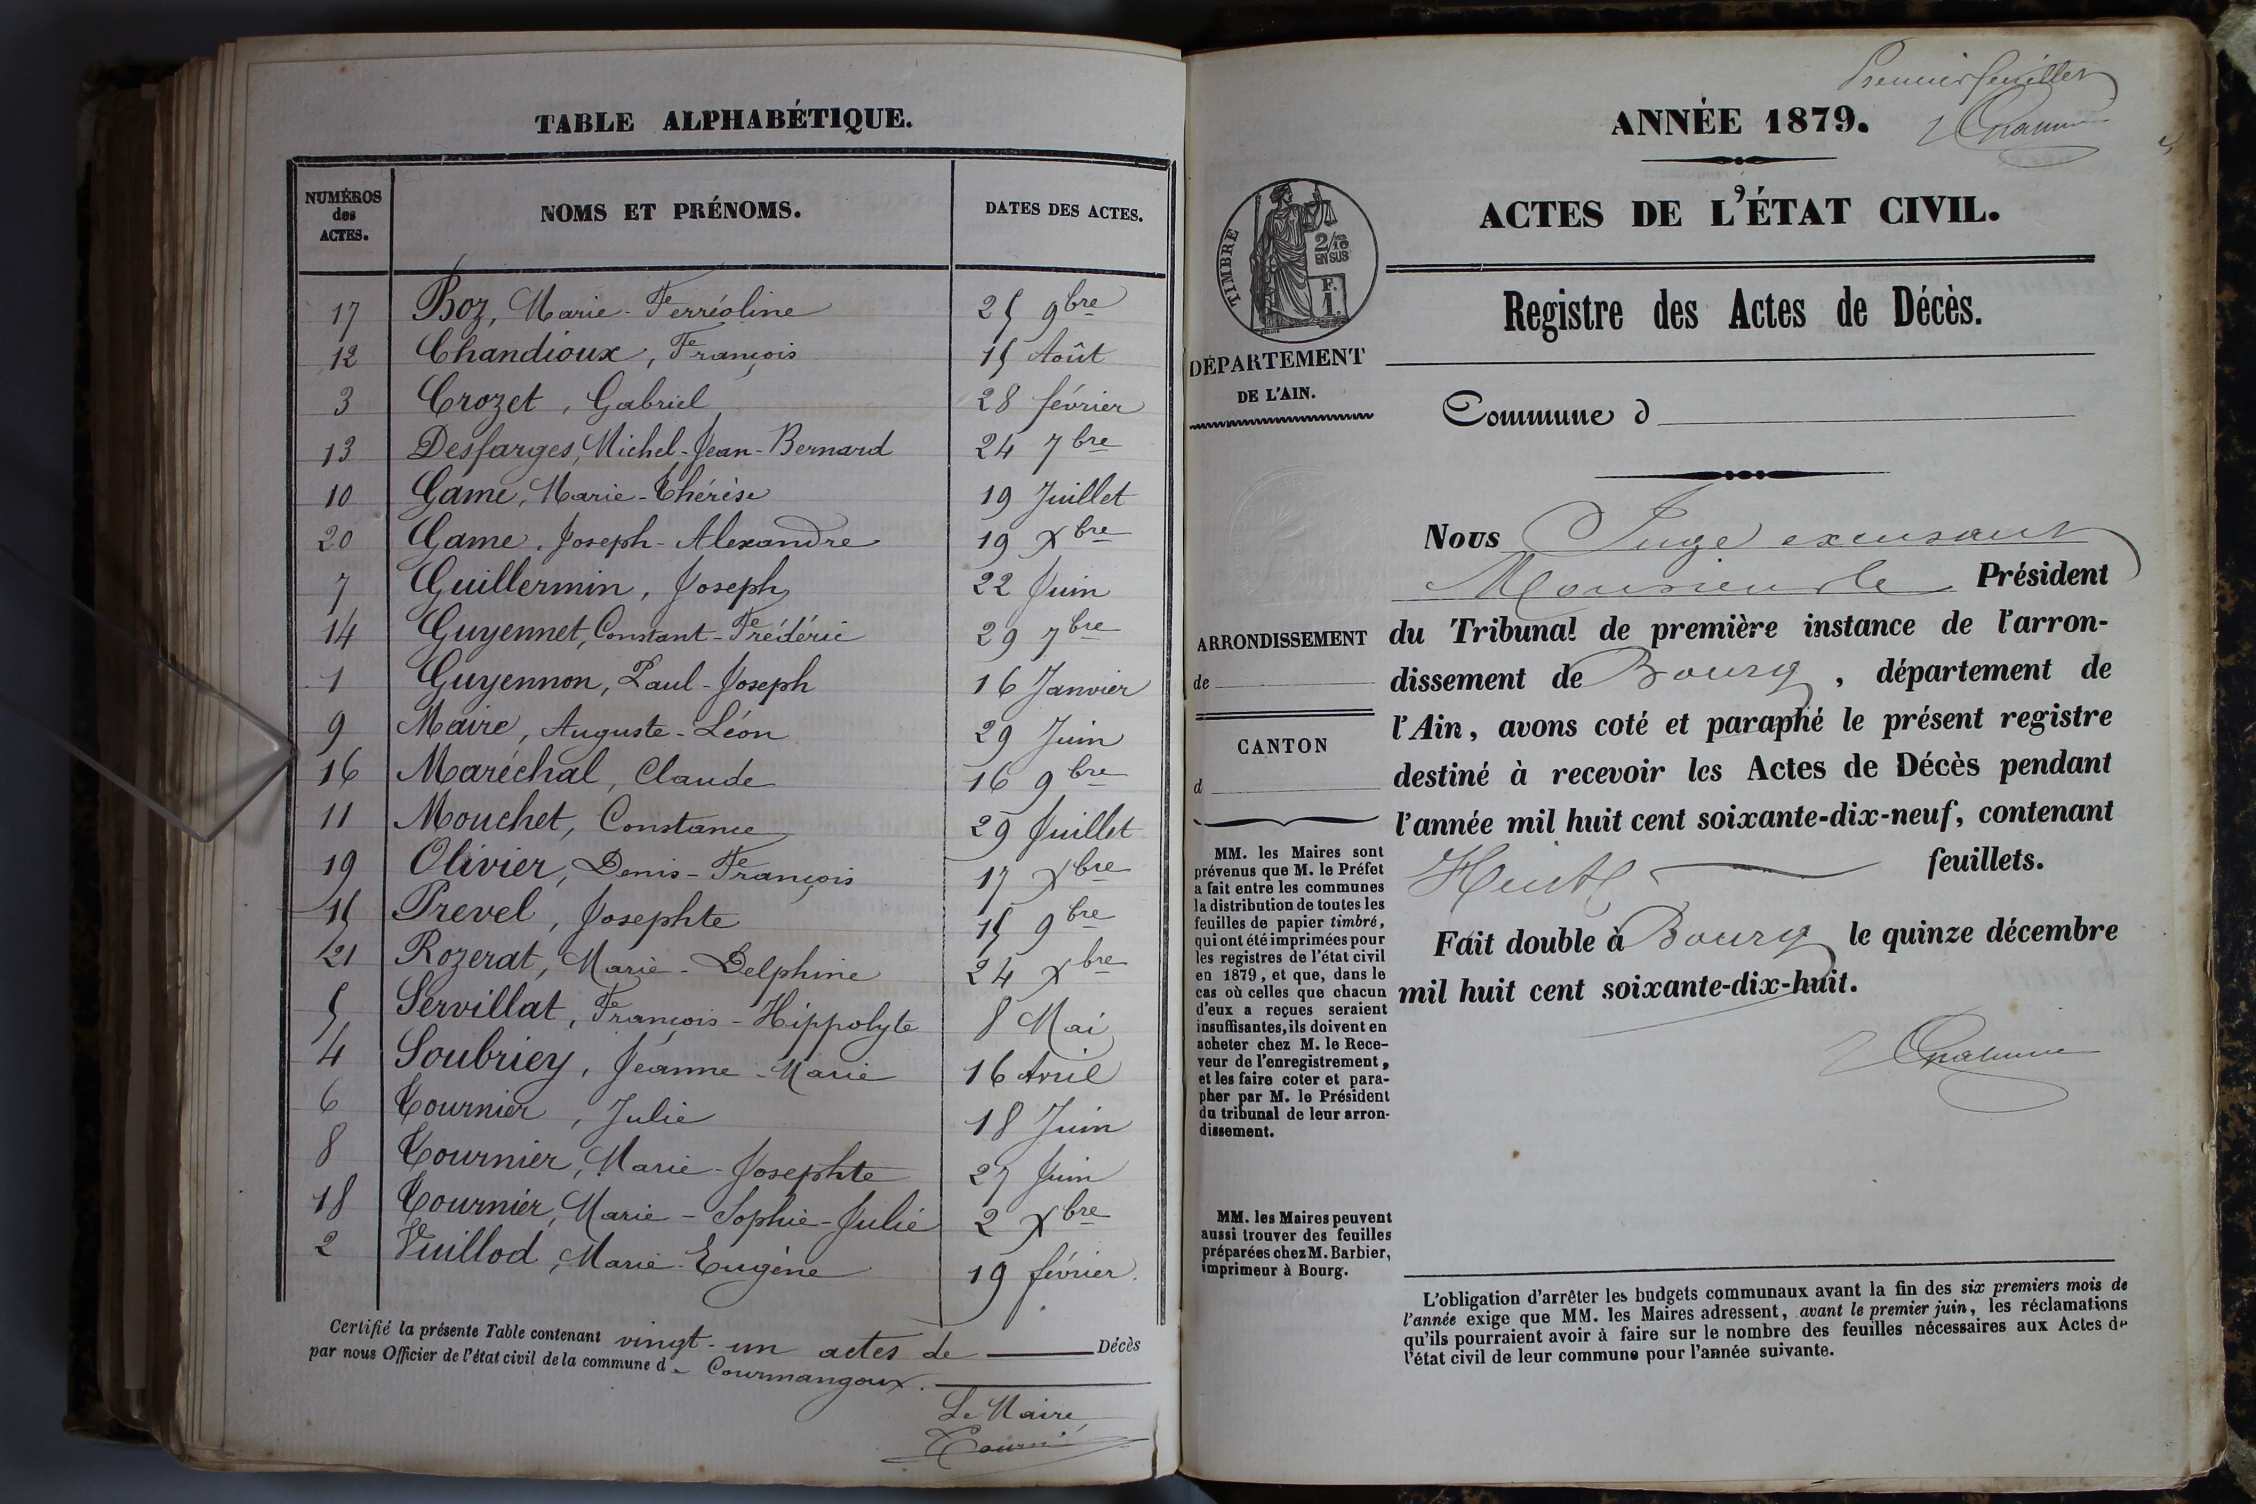 TABLE ALPHABÉTIQUE.
NUMÉROS des ACTES.
NOMS ET PRÉNOMS.
DATES DES ACTES.
17 Boz, Marie-Ferréoline 25 9bre
12 Chandioux, François 15 Août
3 Crozet, Gabriel 28 février
13 Desfarges, Michel-Jean-Bernard 24 7bre
10 Game, Marie-Thérèse 19 Juillet
20 Game, Joseph-Alexandre 19 Xbre
7 Guillermin, Joseph 22 Juin
14 Guyennet, Constant-Frédéric 29 7bre
1 Guyennon, Paul-Joseph 16 Janvier
9 Maire, Auguste-Léon 29 Juin
16 Maréchal, Claude 16 9bre
11 Mouchet, Constance 29 Juillet
19 Olivier, Denis-François 17 Xbre
15 Prevel, Josephte 15 9bre
21 Rozerat, Marie-Delphine 24 Xbre
5 Servillat, François-Hippolyte 8 Mai
4 Soubriey, Jeanne-Marie 16 Avril
6 Tournier, Julie 18 Juin
8 Tournier, Marie-Josephte 27 Juin
18 Tournier, Marie-Sophie-Julie 2 Xbre
2 Vuillod, Marie-Eugène 19 février.
Certifié la présente Table contenant vingt-un actes de Décès
par nous Officier de l'état civil de la commune d e Courmangoux.
Le Maire,
Premier feuillet
ANNÉE 1879.
ACTES DE L'ÉTAT CIVIL.
TIMBRE
2/10
EN SUS
F.
1.
Registre des Actes de Décès.
DÉPARTEMENT
DE L'AIN.
Commune d
Nous Juge excusant
Monsieur le Président
du Tribunal de première instance de l'arron-
dissement de Bourg, département de
l'Ain, avons coté et paraphé le présent registre
destiné à recevoir les Actes de Décès pendant
l'année mil huit cent soixante-dix-neuf, contenant
Huit feuillets.
Fait double à Bourg le quinze décembre
mil huit cent soixante-dix-huit.
ARRONDISSEMENT
de
CANTON
d
MM. les Maires sont
prévenus que M. le Préfet
a fait entre les communes
la distribution de toutes les
feuilles de papier timbré,
qui ont été imprimées pour
les registres de l'état civil
en 1879, et que, dans le
cas où celles que chacun
d'eux a reçues seraient
insuffisantes, ils doivent en
acheter chez M. le Rece-
veur de l'enregistrement,
et les faire coter et para-
pher par M. le Président
du tribunal de leur arron-
dissement.
MM. les Maires peuvent
aussi trouver des feuilles
préparées chez M. Barbier,
imprimeur à Bourg.
L'obligation d'arrêter les budgets communaux avant la fin des six premiers mois de
l'année exige que MM. les Maires adressent, avant le premier juin, les réclamations
qu'ils pourraient avoir à faire sur le nombre des feuilles nécessaires aux Actes de
l'état civil de leur commune pour l'année suivante.